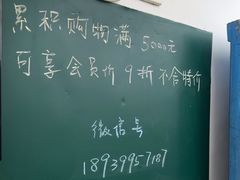 累积购物满 5000元
可享会员价 9折 不含特价
微信号
18939957187